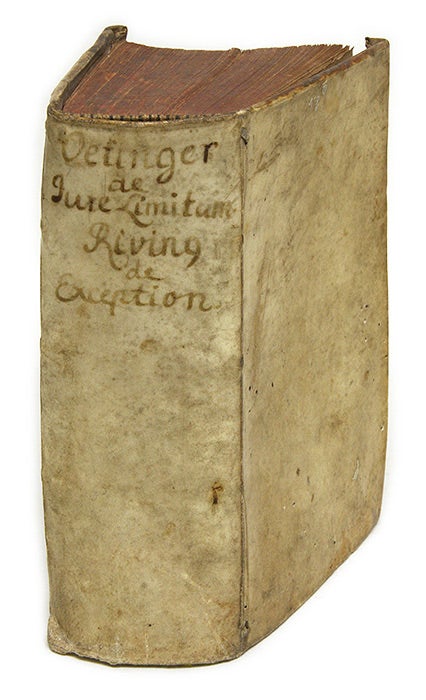 Oetinger
de
Jure Limitum
Riving
de
Exception